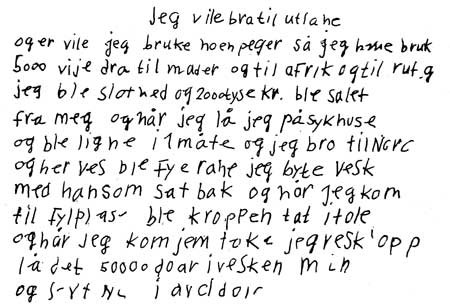 jeg vile bra til utlahe
og er vile jeg bruke noen peger så jeg bruk
5000 vije dra til mader og til afrik og til rut.g
jeg ble slot ned og 2000 tyse kr. ble salet
fra meg og når jeg lå jeg på sykhuse
og ble lighe i 1 måte og jeg bro til
og her ves ble fye rahe jeg byte vesk
med han som sat bak og nor jeg kom
til fylplas ble kroppen tat i tole
og når jeg kom jem toke jeg vesk opp
lå det 50000 doar i vesken min
og i